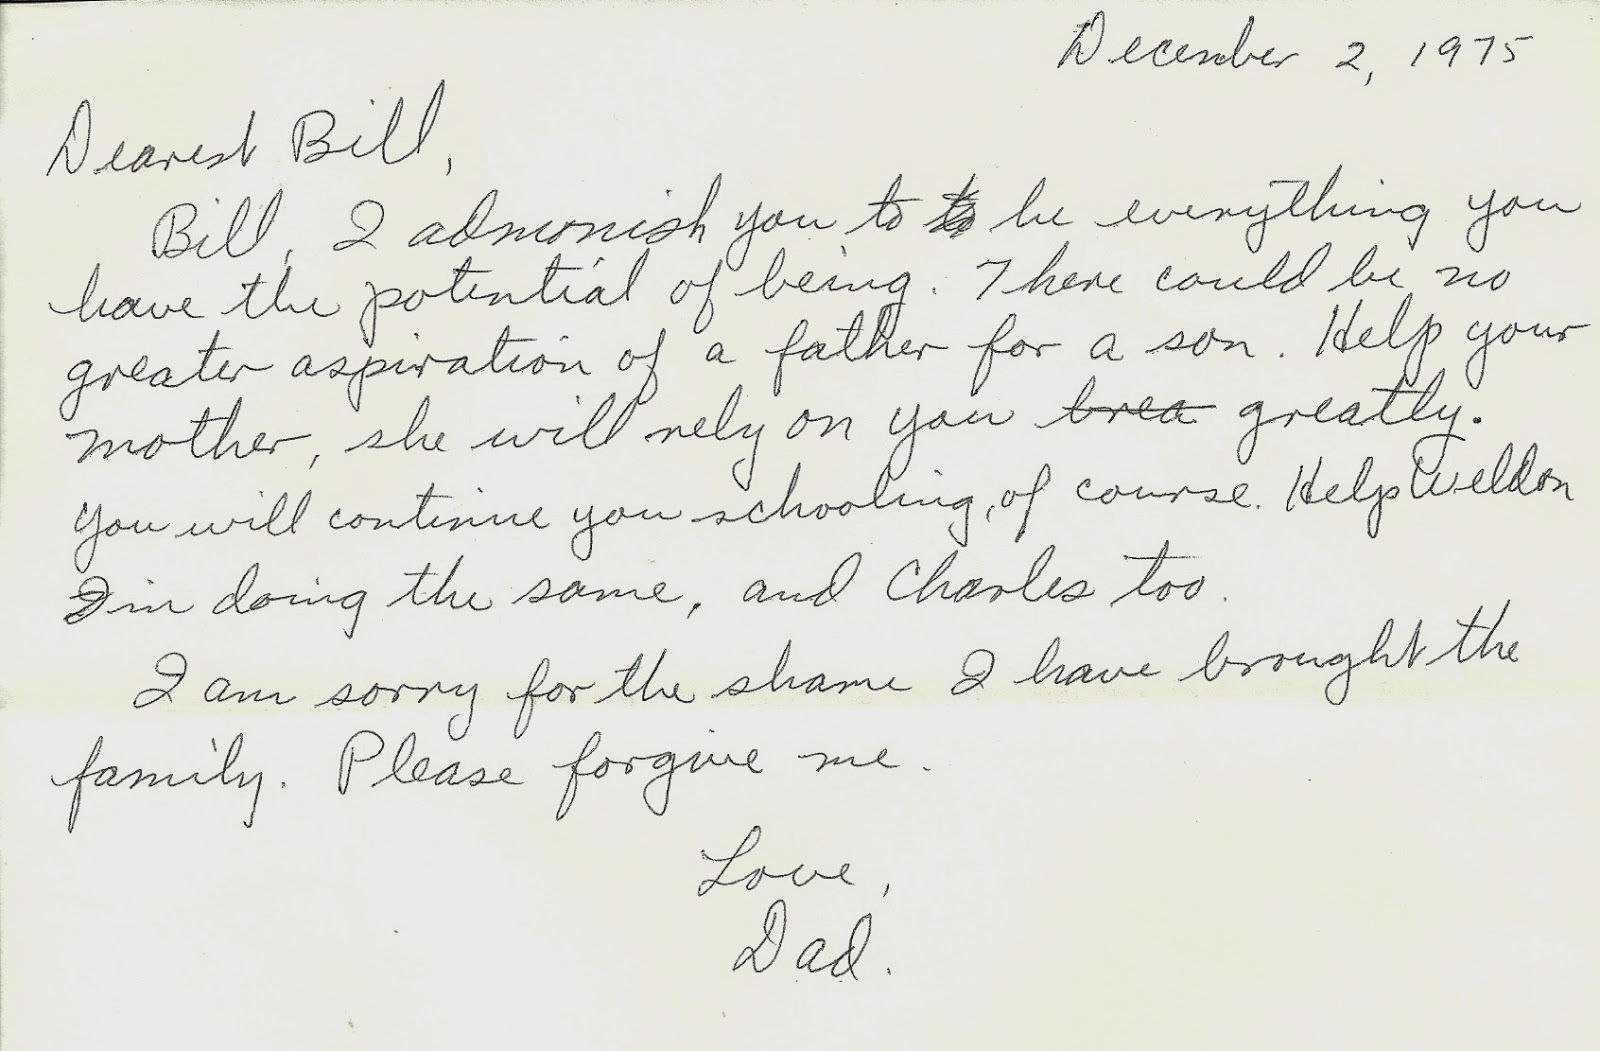 December 2, 1975
Dearest Bill,
Bill, I admonish you to to be everything you
have the potential of being. There could be no
greater aspiration of a father for a son. Help your
mother, she will rely on you brea greatly.
You will continue you schooling, of course. Help Weldon
In doing the same, and Charles too.
I am sorry for the shame I have brought the
family. Please forgive me.
Love,
Dad.